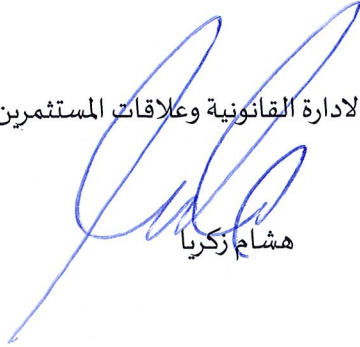 لادارة القانونية وعلاقات المستثمرين
هشام زكريا